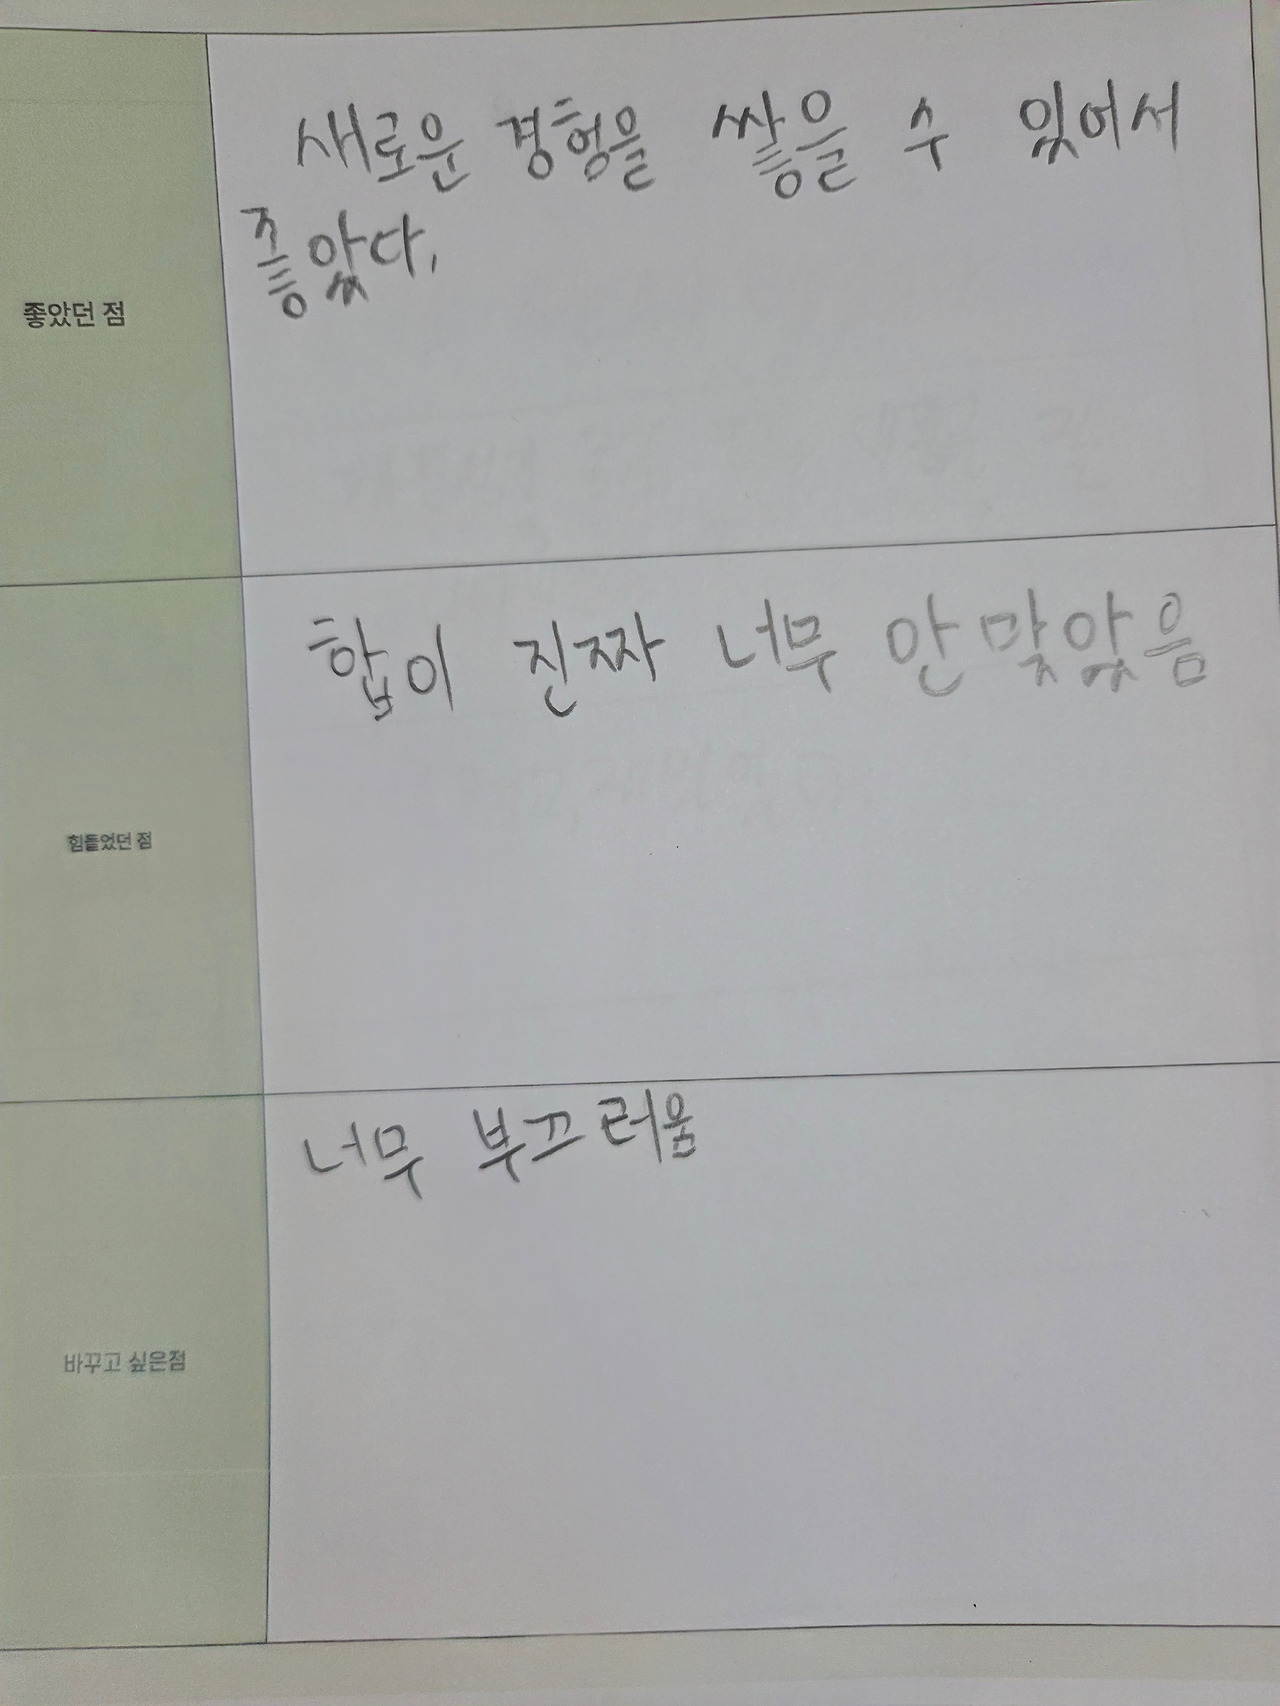 새로운 경험을 쌓을 수 있어서
좋았다.
좋았던 점
합이 진짜 너무 안 맞았음
힘들었던 점
너무 부끄러움
바꾸고 싶은점